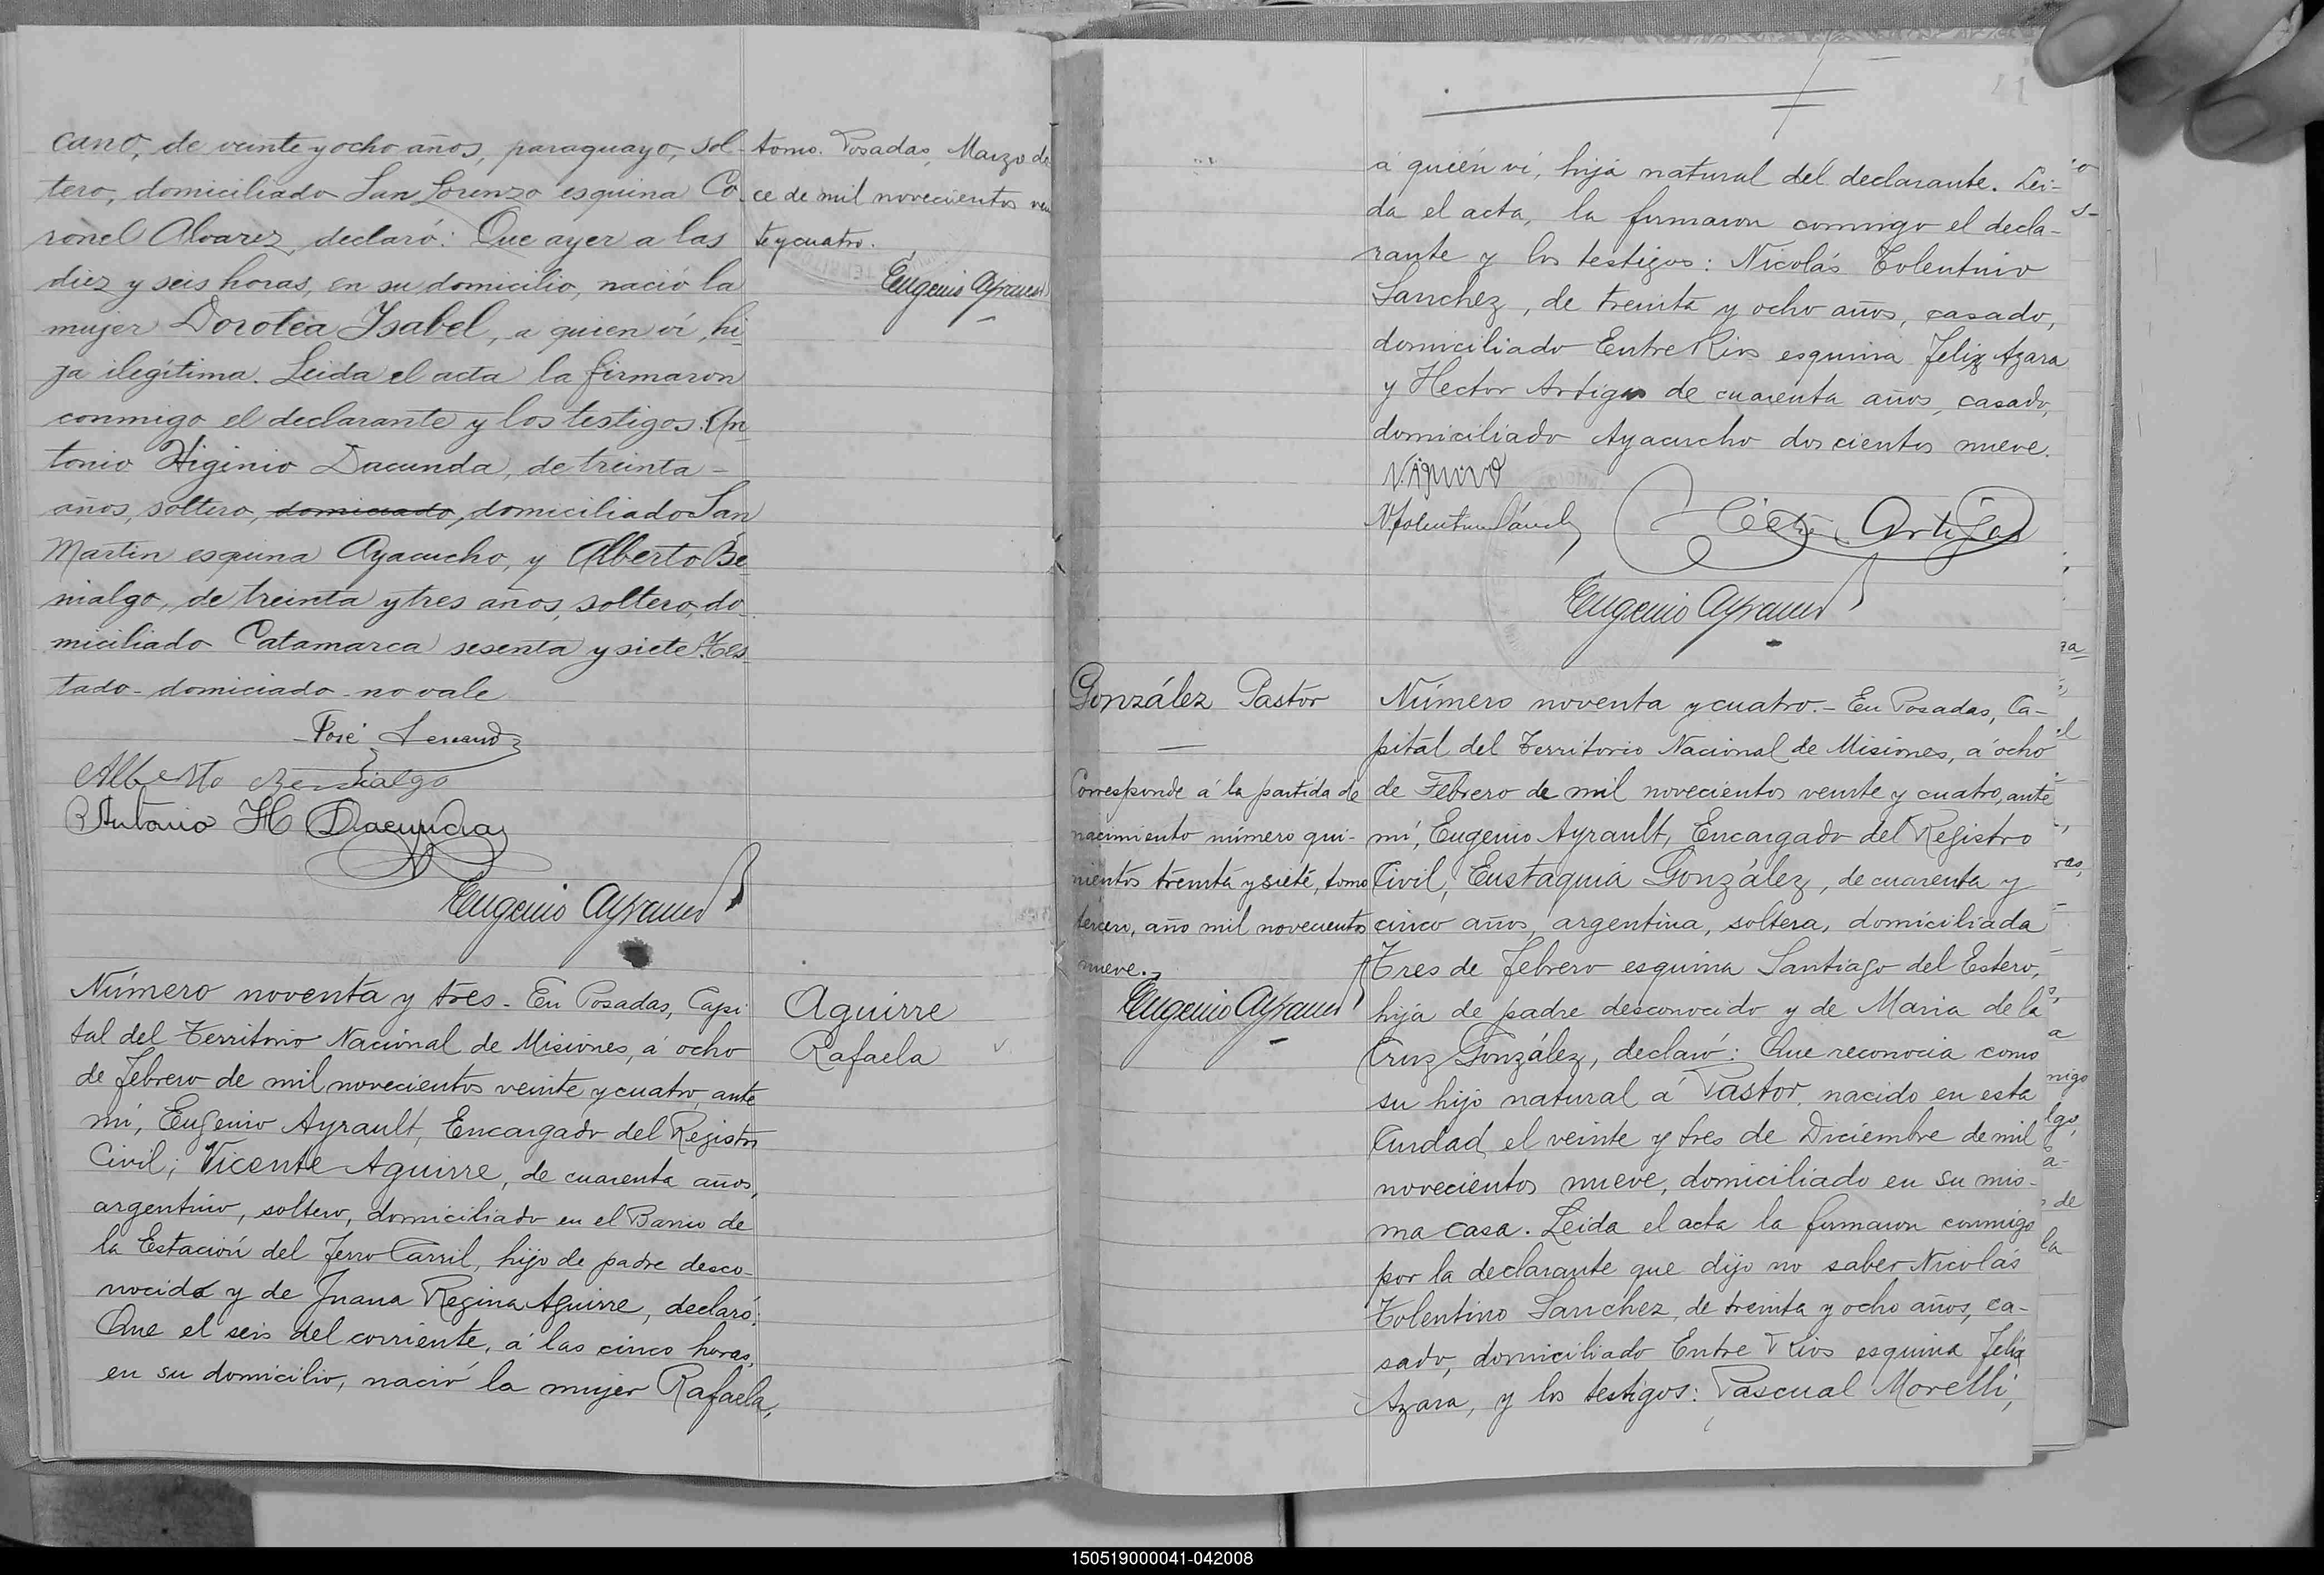 cano, de veinte y ocho años, paraguayo, sol-
tero, domiciliado San Lorenzo esquina Co-
ronel Alvarez, declaró: Que ayer a las
diez y seis horas, en su domicilio, nació la
mujer Dorotea Isabel, a quien ví, hi-
ja ilegítima. Leida el acta la firmaron
conmigo el declarante y los testigos: An-
tonio Higinio Dacunda, de treinta -
años, soltero, domiciado, domiciliado San
Martin esquina Ayacucho, y Alberto Be-
nialgo, de treinta y tres años, soltero, do-
miciliado Catamarca sesenta y siete. Tes-
tado - domiciado - no vale
José
Alberto Benialgo
Antonio H Dacunda
Eugenio Ayrault
tomo. Posadas, Marzo do
ce de mil novecientos vein
te y cuatro.
Eugenio Ayrault
Número noventa y tres - En Posadas, Capi-
tal del Territorio Nacional de Misiones, á ocho
de febrero de mil novecientos veinte y cuatro, ante
mí, Eugenio Ayrault, Encargado del Registro
Civil; Vicente Aguirre, de cuarenta años,
argentino, soltero, domiciliado en el Barrio de
la Estación del Ferro Carril, hijo de padre desco-
nocido y de Juana Regina Aguirre, declaró:
Que el seis del corriente, á las cinco horas,
en su domicilio, nació la mujer Rafaela,
Aguirre
Rafaela
á quién ví, hija natural del declarante. Lei-
da el acta, la firmaron conmigo el decla-
rante y los testigos: Nicolás Tolentino
Sanchez, de treinta y ocho años, casado,
domiciliado Entre Rios esquina Felix Azara
y Hector Artigas de cuarenta años, casado,
domiciliado Ayacucho dos cientos nueve.
N. Tolentino Sánchez
Héctor Artigas
Eugenio Ayrault
González Pastor
Corresponde á la partida de
nacimiento número qui-
nientos treinta y siete, tomo
tercero, año mil novecientos
nueve.
Eugenio Ayrault
Número noventa y cuatro. - En Posadas, Ca-
pital del Territorio Nacional de Misiones, á ocho
de Febrero de mil novecientos veinte y cuatro, ante
mí, Eugenio Ayrault, Encargado del Registro
Civil, Eustaquia González, de cuarenta y
cinco años, argentina, soltera, domiciliada
Tres de febrero esquina Santiago del Estero,
hija de padre desconocido y de Maria de la
Cruz González, declaró: Que reconocia como
su hijo natural á Pastor, nacido en esta
Ciudad el veinte y tres de Diciembre de mil
novecientos nueve, domiciliado en su mis-
ma casa. Leida el acta la firmaron conmigo
por la declarante que dijo no saber Nicolás
Tolentino Sanchez, de treinta y ocho años, ca-
sado, domiciliado Entre Rios esquina Felix
Azara, y los testigos: Pascual Morelli,
150519000041-042008